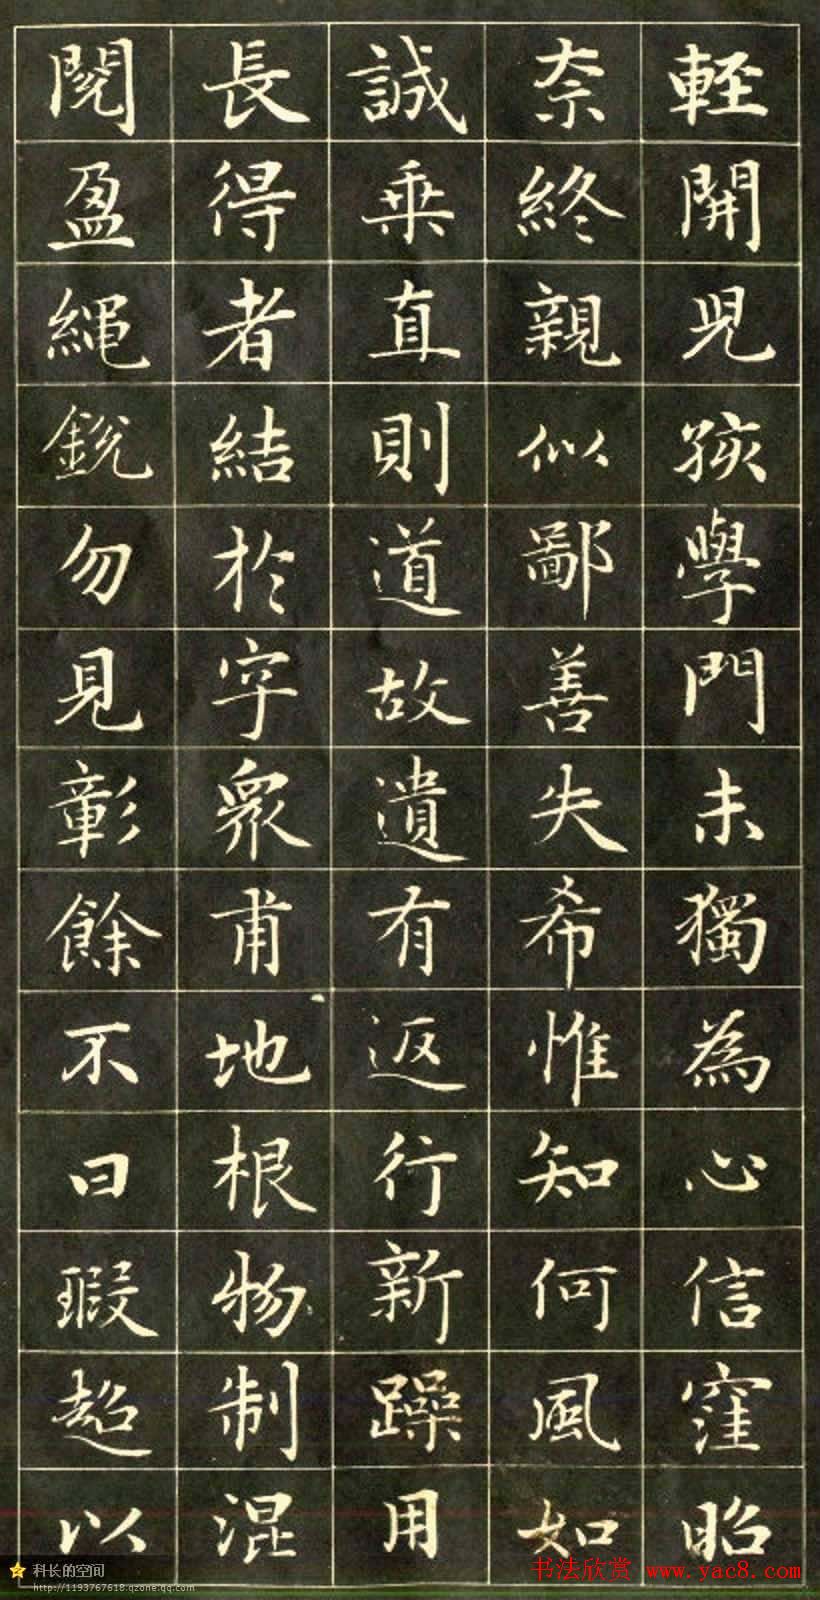 輕開兒孩學門未獨為心信窪昭
奈終親似鄙善失希惟知何風如
誠乘直則道故遺有返行新躁用
長得者結於字眾甫地根物制混
閱盈繩銳勿見彰餘不曰瑕超以
科长的空间
http://1193767618.qzone.qq.com
书法欣赏 www.yac8.com